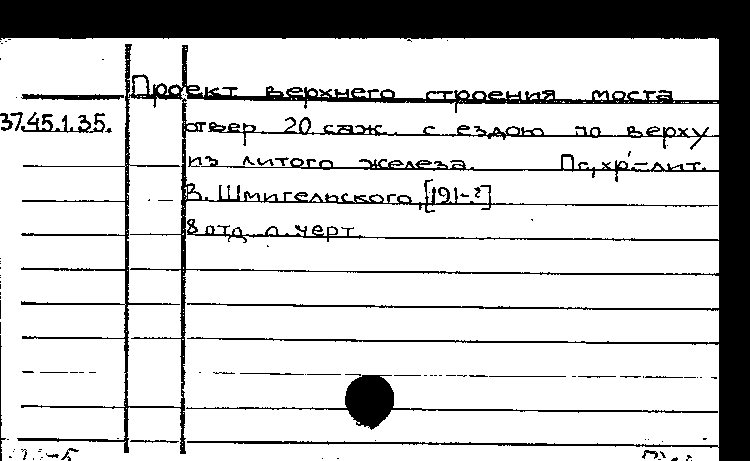 Проект верхнего строения моста
37.45.1.35. отвер. 20 саж. с ездою по верху
из литого железа. Пг, хр.-лит.
В. Шмигельского, [191-?]
8 отд. л. черт.